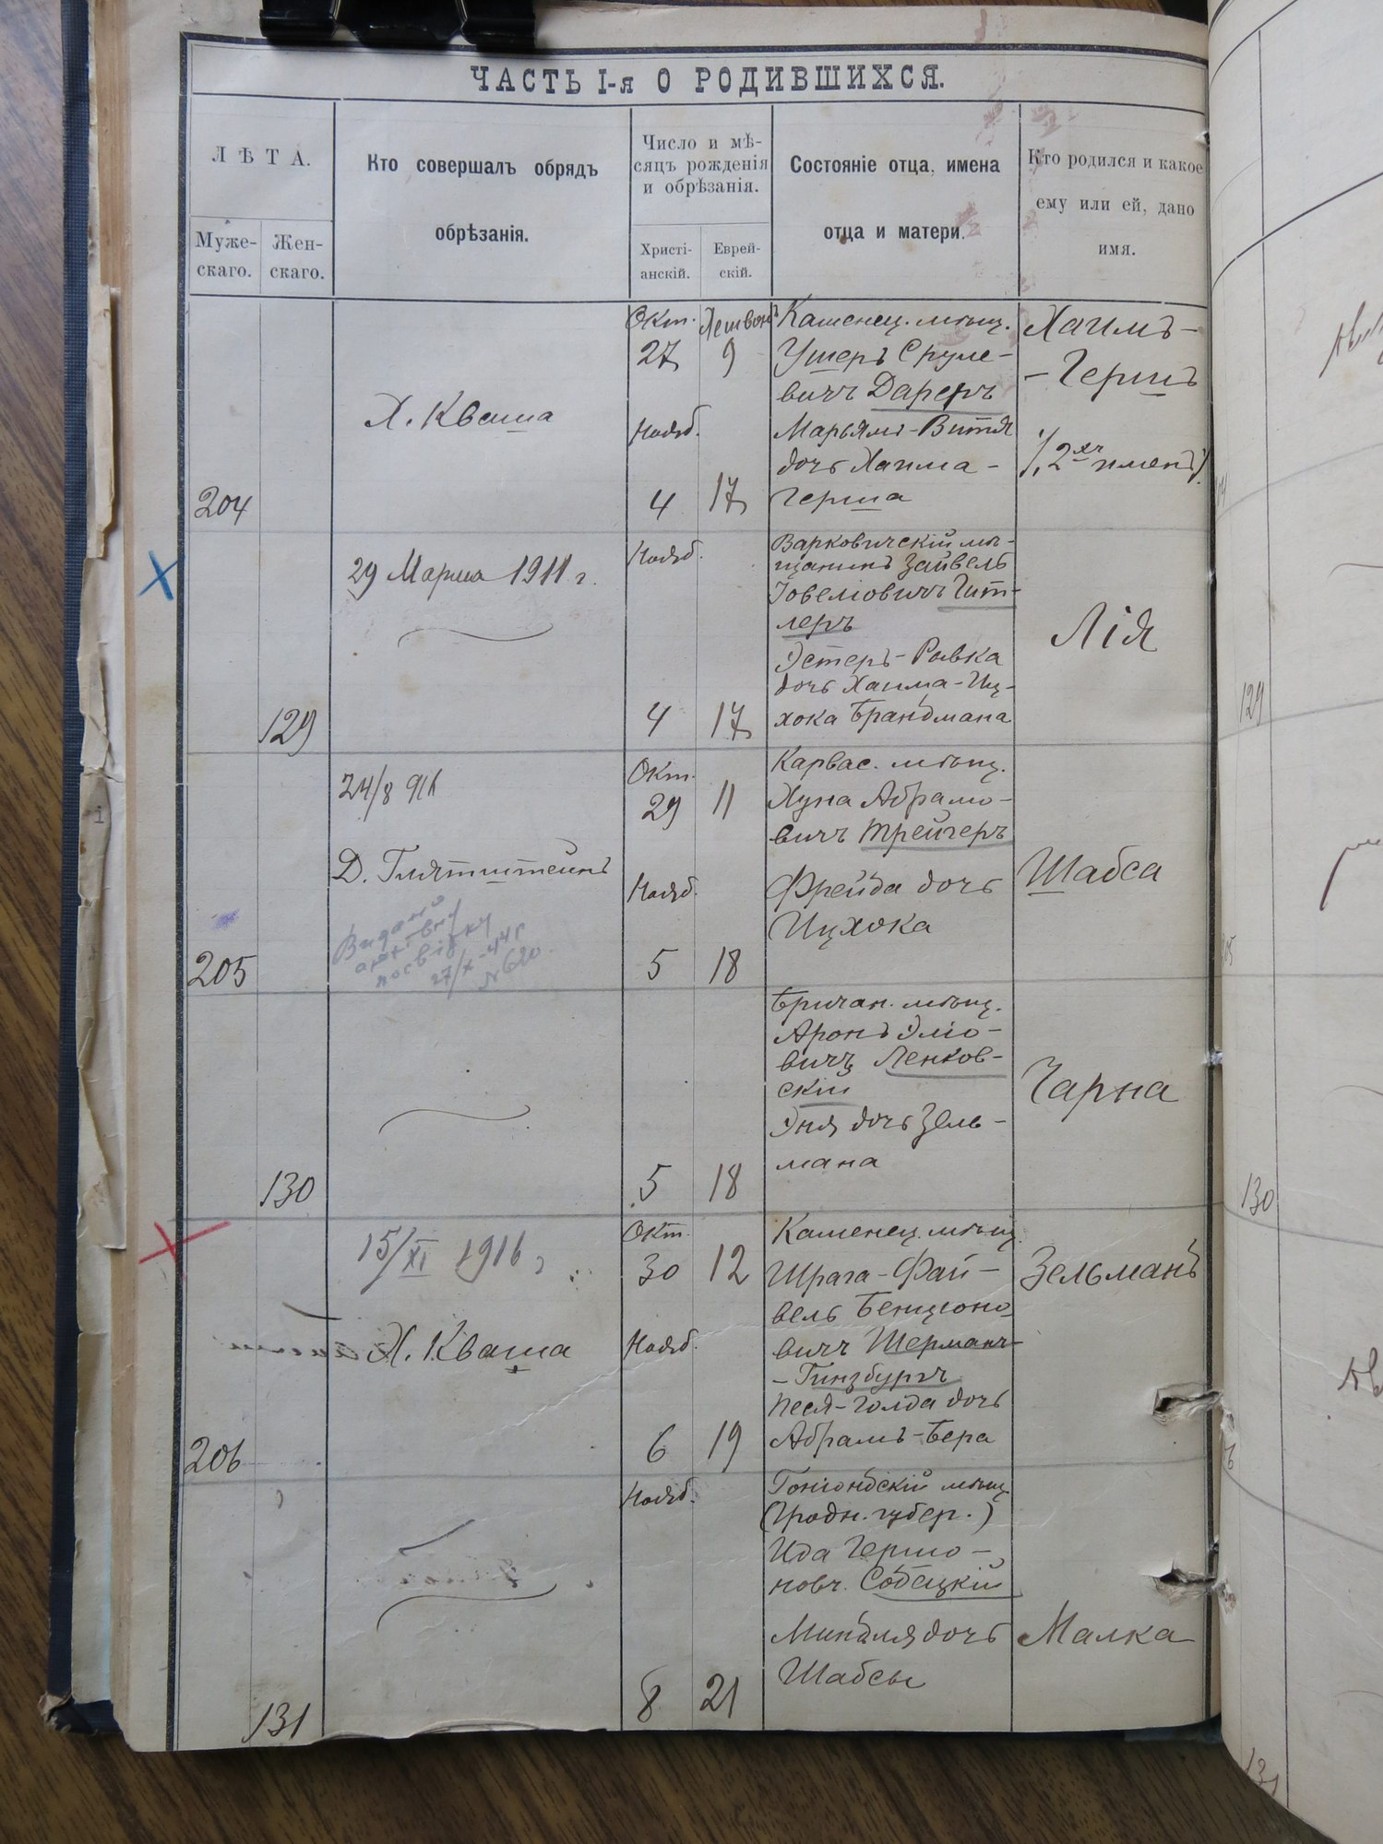 ЧАСТЬ I-я О РОДИВШИХСЯ.
ЛѢТА.
Муже-
скаго.
Жен-
скаго.
Кто совершалъ обрядъ
обрѣзанія.
Число и мѣ-
сяцъ рожденія
и обрѣзанія.
Христі-
анскій.
Еврей-
скій.
Состояніе отца, имена
отца и матери.
Кто родился и какое
ему или ей, дано
имя.
204
Х. Кваша
Окт.
27
Нояб.
4
Хешвонъ
9
17
Каменец. мѣщ.
Ушеръ Сруле-
вичъ Дареръ
Марьямъ-Виття
дочь Хаима-
Герша
Хаимъ-
-Гершъ
(2хъ именъ)
129
29 Марта 1911 г.
Нояб.
4
17
Варковичскій мѣ-
щанинъ Зайвель
Іовеліовичъ Гит-
леръ
Эстеръ-Ривка
дочь Хаима-Иц-
хока Брандмана
Лія
205
24/8 911
Д. Глятштейнъ
Видано
архівну
посвідку
27/X-44 г
№ 620
Окт.
29
Нояб.
5
11
18
Карвас. мѣщ.
Хуна Абрамо-
вичъ Трейгеръ
Фрейда дочь
Ицхока
Шабса
130
5
18
Бричан. мѣщ.
Аронъ Эліо-
вичъ Ленков-
скій
Эня дочь Зель-
мана
Чарна
206
15/XI 1916 г
Х. Кваша
Окт.
30
Нояб.
6
12
19
Каменец. мѣщ.
Шрага-Фай-
вель Бенціоно
вичъ Шерманъ-
-Гинзбургъ
Песя-Голда дочь
Абрамъ-Бера
Зельманъ
131
Нояб.
8
21
Гоніондскій мѣщ
(Гродн. губер.)
Ида Гершо-
новч. Собецкій
Миндля дочь
Шабсы
Малка
129
130
131